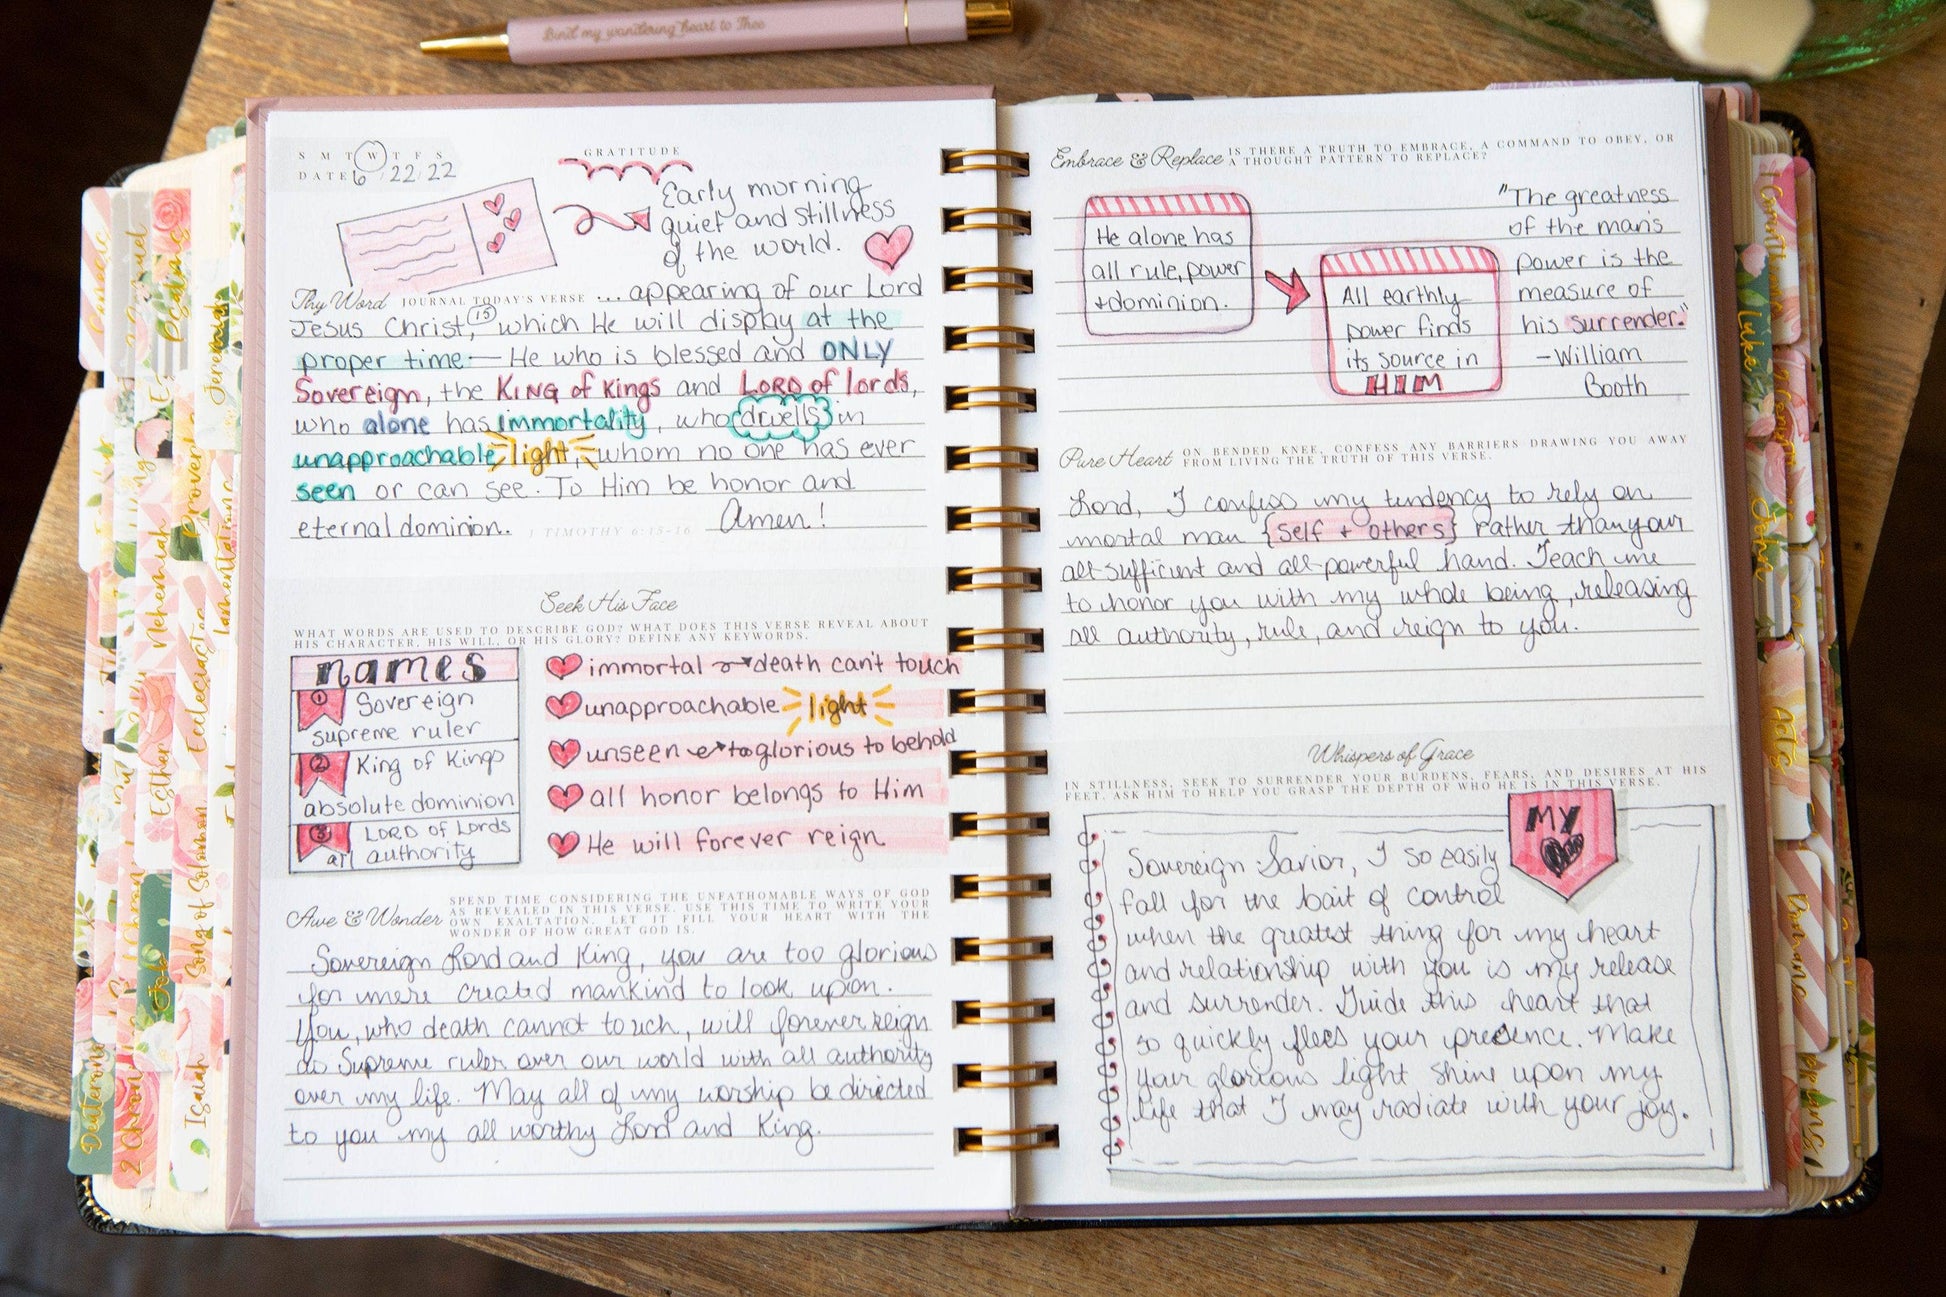 Bind my wandering heart to Thee
S M T W T F S
DATE 6/22/22
GRATITUDE
Early morning
quiet and stillness
of the world.
Thy Word JOURNAL TODAY'S VERSE ...appearing of our Lord
Jesus Christ, 15 which He will display at the
proper time — He who is blessed and ONLY
Sovereign, the KING of Kings and LORD of lords,
who alone has immortality, who dwells in
unapproachable light, whom no one has ever
seen or can see. To Him be honor and
eternal dominion. 1 TIMOTHY 6:15-16 Amen!
Seek His Face
WHAT WORDS ARE USED TO DESCRIBE GOD? WHAT DOES THIS VERSE REVEAL ABOUT
HIS CHARACTER, HIS WILL, OR HIS GLORY? DEFINE ANY KEYWORDS.
names
1 Sovereign
supreme ruler
2 King of Kings
absolute dominion
3 LORD of Lords
all authority
immortal → death can't touch
unapproachable light
unseen → too glorious to behold
all honor belongs to Him
He will forever reign
Awe & Wonder
SPEND TIME CONSIDERING THE UNFATHOMABLE WAYS OF GOD
AS REVEALED IN THIS VERSE. USE THIS TIME TO WRITE YOUR
OWN EXALTATION. LET IT FILL YOUR HEART WITH THE
WONDER OF HOW GREAT GOD IS.
Sovereign Lord and King, you are too glorious
for mere created mankind to look upon.
You, who death cannot touch, will forever reign
as Supreme ruler over our world with all authority
over my life. May all of my worship be directed
to you my all worthy Lord and King.
Embrace & Replace IS THERE A TRUTH TO EMBRACE, A COMMAND TO OBEY, OR
A THOUGHT PATTERN TO REPLACE?
He alone has
all rule, power
+ dominion.
All earthly
power finds
its source in
HIM
"The greatness
of the man's
power is the
measure of
his surrender."
- William
Booth
Pure Heart ON BENDED KNEE, CONFESS ANY BARRIERS DRAWING YOU AWAY
FROM LIVING THE TRUTH OF THIS VERSE.
Lord, I confess my tendency to rely on
mortal man {self + others} rather than your
all-sufficient and all-powerful hand. Teach me
to honor you with my whole being, releasing
all authority, rule, and reign to you.
Whispers of Grace
IN STILLNESS, SEEK TO SURRENDER YOUR BURDENS, FEARS, AND DESIRES AT HIS
FEET. ASK HIM TO HELP YOU GRASP THE DEPTH OF WHO HE IS IN THIS VERSE.
MY
Sovereign Savior, I so easily
fall for the bait of control
when the greatest thing for my heart
and relationship with you is my release
and surrender. Guide this heart that
so quickly flees your presence. Make
your glorious light shine upon my
life that I may radiate with your joy.
Psalms
Jeremiah
Proverbs
Lamentations
Nehemiah
Ecclesiastes
Esther
Job
Song of Solomon
Isaiah
Deuteronomy
2 Chron
Luke
John
Acts
Romans